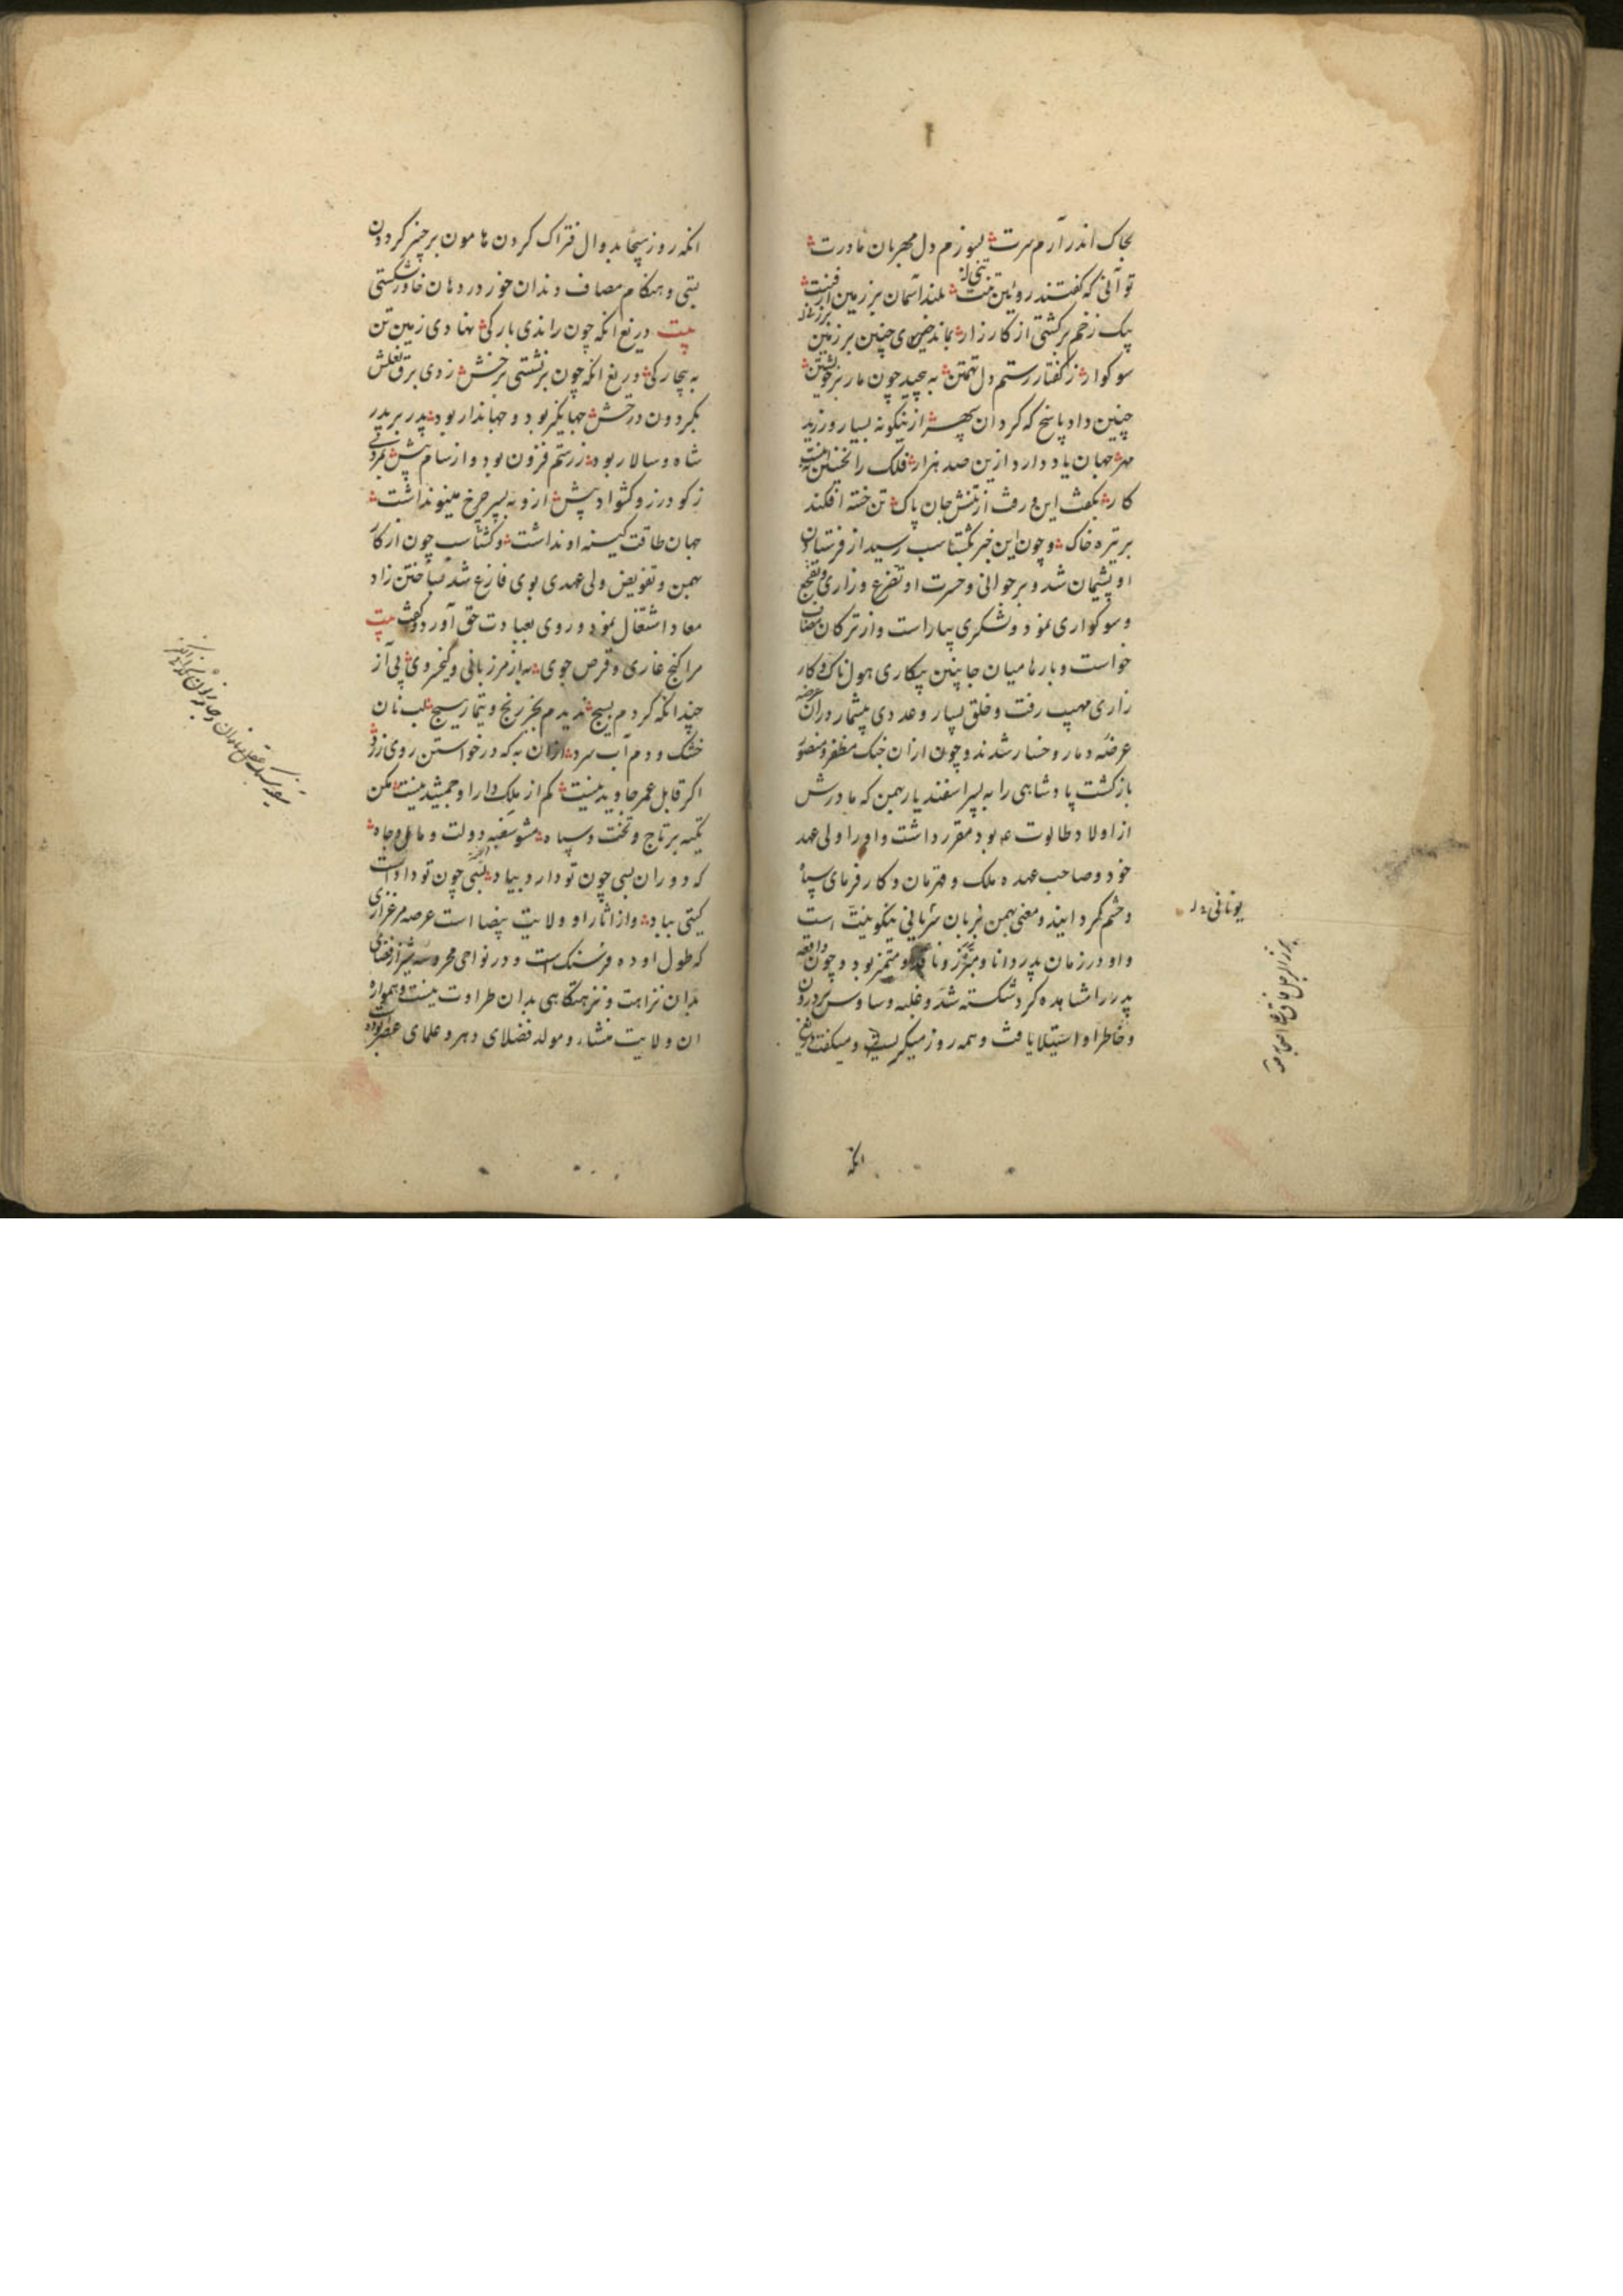 بخاک اندر آرم سرت بسوزم دل مهربان مادرت
تو آنی که گفتند رویین تنت بلند آسمان بر زمین
بیک زخم برگشتی از کارزار بماند چنین بر زمین
سوکوار ز گفتار رستم دل تهمتن به پیچید چون مار بر خویشتن
چنین داد پاسخ که گردان سپهر ازینگونه بسیار ورزید
مهر جهان یاد دارد ازین صد هزار فلک را نخستین
کار بگفت این و رفت از تنش جان پاک تن خسته افکند
بر تیره خاک و چون این خبر بگشتاسب رسید از فرستادن
او پشیمان شد و بر جوانی و حسرت او تضرع و زاری و تفجع
و سوکواری نمود و لشکری بیاراست و از ترکان
خواست و بارها میان جانبین پیکاری هولناک و کار
زاری مهیب رفت و خلق بسیار و عددی بیشمار در آن
عرضه دمار و خسار شدند و چون از آن جنک مظفر و منصور
بازگشت پادشاهی را به پسر اسفندیار بهمن که مادرش
از اولاد طالوت بود مقرر داشت و او را ولی عهد
خود و صاحب عهده ملک و قهرمان و کارفرمای سپاه
و حشم گردانید و معنی بهمن بزبان سریانی نیکو نیت است
یونانی
و او در زمان پدر دانا و مبرز و متمیز بود و چون واقعه
پدر را مشاهده کرد شکسته شد و غلبه وساوس بر درون
و خاطر او استیلا یافت و همه روز میگریست و میگفت دریغ
انکه
انکه روز هیجا بدوال فتراک گردن هامون بر چنبر گردون
بستی و هنگام مصاف دندان خور در دهان خاور شکستی
بیت دریغ انکه چون راندی بارگی نهادی زمین تن
به بیچارگی دریغ انکه چون برنشستی برخش زدی برق نعلش
بگردون درخش جهانگیر بود و جهاندار بود پدر بر پدر
شاه و سالار بود ز رستم فزون بود و از سام بیش بمردی
ز گودرز و کشواد پیش ازو به پسر چرخ مینو نداشت
جهان طاقت کینه او نداشت و گشتاسب چون از کار
بهمن و تفویض ولی عهدی بوی فارغ شد بساختن زاد
معاد اشتغال نمود و روی بعبادت حق آورد و گفت بیت
مرا کنج غاری و قرص جوی به از مرزبانی و کیخسروی پی آز
چندانکه کردم بسیج ندیدم بجز رنج و تیمار هیچ لب نان
خشک و دم آب سرد ازان به که در خواستن روی زرد
اگر قابل عمر جاوید نیست کم از ملک دارا و جمشید نیست مکن
تکیه بر تاج و تخت و سپاه مشو سغبه دولت و مال و جاه
که دوران بسی چون تو دارد بیاد بسی چون تو دادست
گیتی بباد و از اثار او ولایت بیضا است عرصه مرغزاری
که طول او ده فرسنگ است و در نواحی محروسه شیراز فضای
بدان نزاهت و نزهتگاهی بدان طراوت نیست و همواره
ان ولایت منشاء و مولد فضلای دهر و علمای عصر بوده